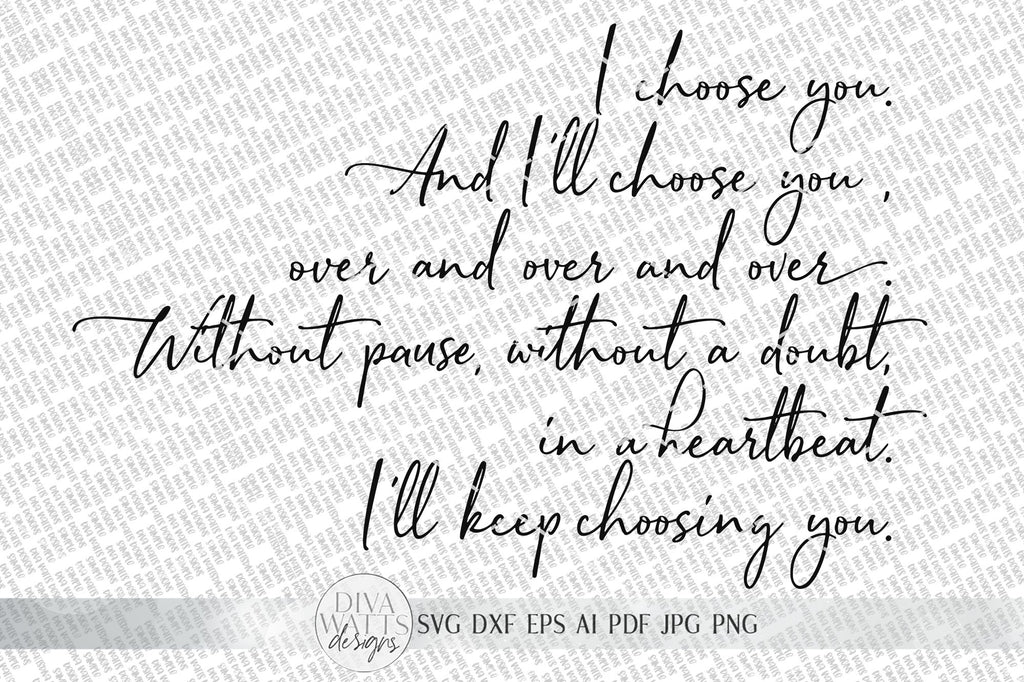 I choose you.
And I'll choose you,
over and over and over.
Without pause, without a doubt,
in a heartbeat.
I'll keep choosing you.
DIVA
WATTS
designs
SVG DXF EPS AI PDF JPG PNG